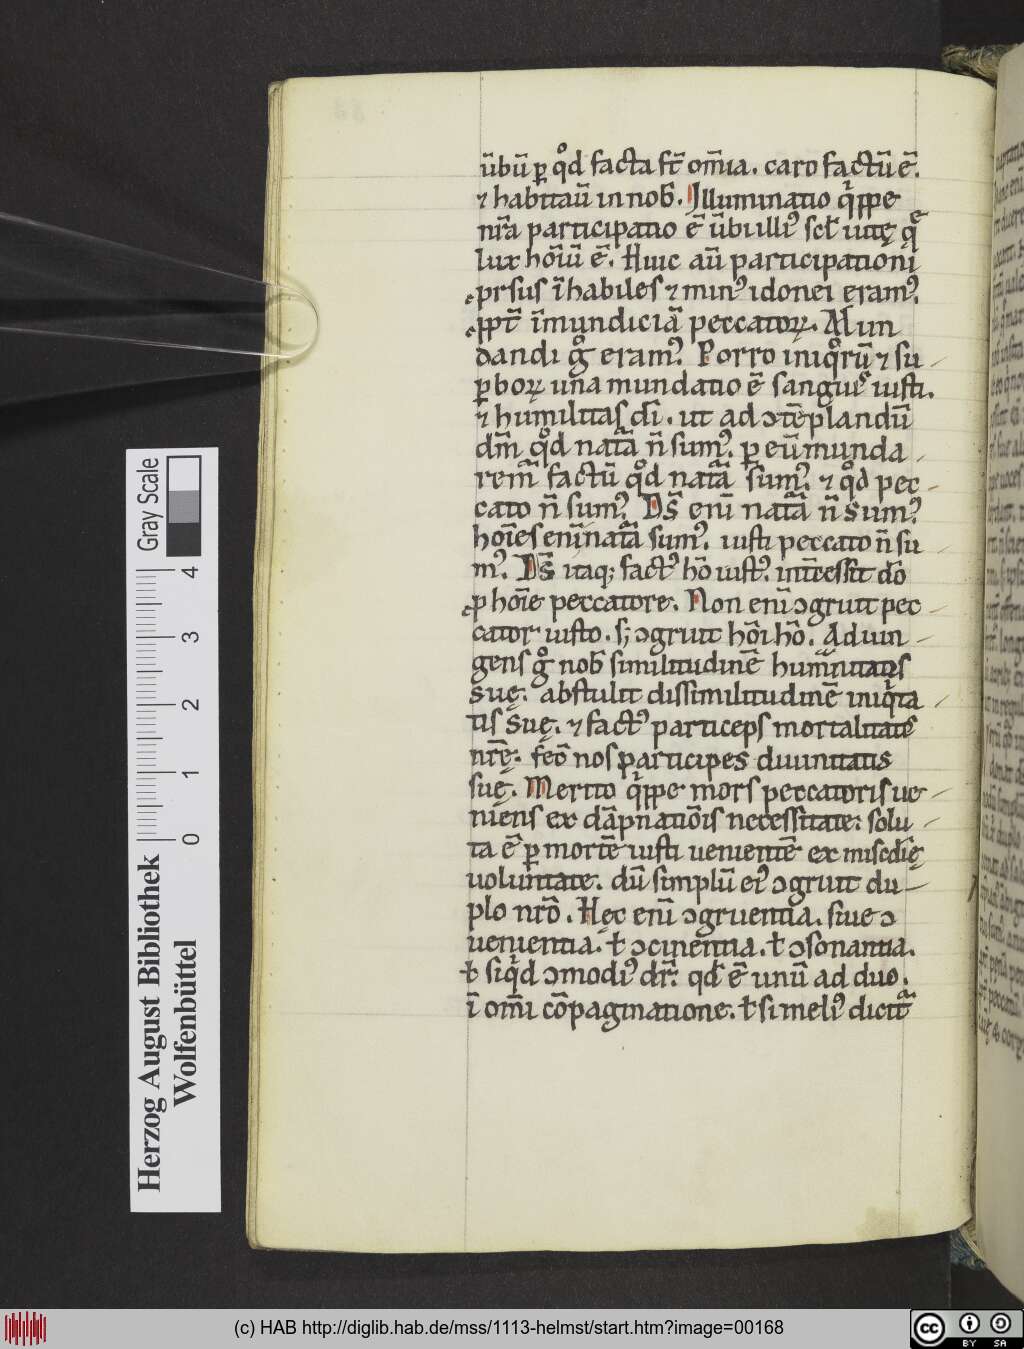 ūbū ꝑ qͦd facta st̄ om̄ia. caro factū ē.
⁊ habitau̅ in nob̅. Illuminatio qͥppe
nr̄a participatio ē ūbi illiꝰ scl̄ uitę qͣ
lux ho̅iū ē. Huic au̅ participationi
prsus i̅habiles ⁊ minꝰ idonei eramꝰ.
ꝓpt̅ i̅mundiciā peccatoꝝ. Mun
dandi gͦ eramꝰ. Porro iniqͦrū ⁊ su
ꝑboꝝ una mundatio ē sanguis iusti.
⁊ humilitas di̅. ut ad ↄte̅plandū
dm̅ qͦd natā n̅ sumꝰ. ꝑ eū munda
remꝰ factū qͦd natā sumꝰ. ⁊ qͦd pec
cato n̅ sumꝰ. Ds̅ eni̅ natā n̅ sumꝰ.
ho̅ies eni̅ natā sumꝰ. iusti peccato n̅ su
mꝰ. Ds̅ itaq; factꝰ ho̅ iustꝰ. int̅cessit do̅
ꝓ ho̅ie peccatore. Non eni̅ ↄgruit pec
cator iusto. s; ↄgruit ho̅i ho̅. Adiun
gens gͦ nob̅ similitudinē humanitatis
suę. abstulit dissimilitudinē iniqͥta
tis suę. ⁊ factꝰ particeps mortalitatis
nr̄ę. feċ nos participes diuinitatis
suę. Merito qͥppe mors peccatoris ue
niens ex dāpnatio̅is necessitate: solu
ta ē ꝑ mortē iusti uenientē ex mis̅cdię
uoluntate. dū simplū eiꝰ ↄgruit du
plo nr̄o. Hęc eni̅ ↄgruentia. siue ↄ
uenientia. ł ↄcinentia. ł ↄsonantia.
ł siqͥd ↄmodiꝰ dr̅. qd̅ ē unū ad duo.
i̅ om̅i co̅paginatione. ł si meliꝰ dicit̅
Herzog August Bibliothek
Wolfenbüttel
Gray Scale
0 1 2 3 4
(c) HAB http://diglib.hab.de/mss/1113-helmst/start.htm?image=00168
cc BY SA